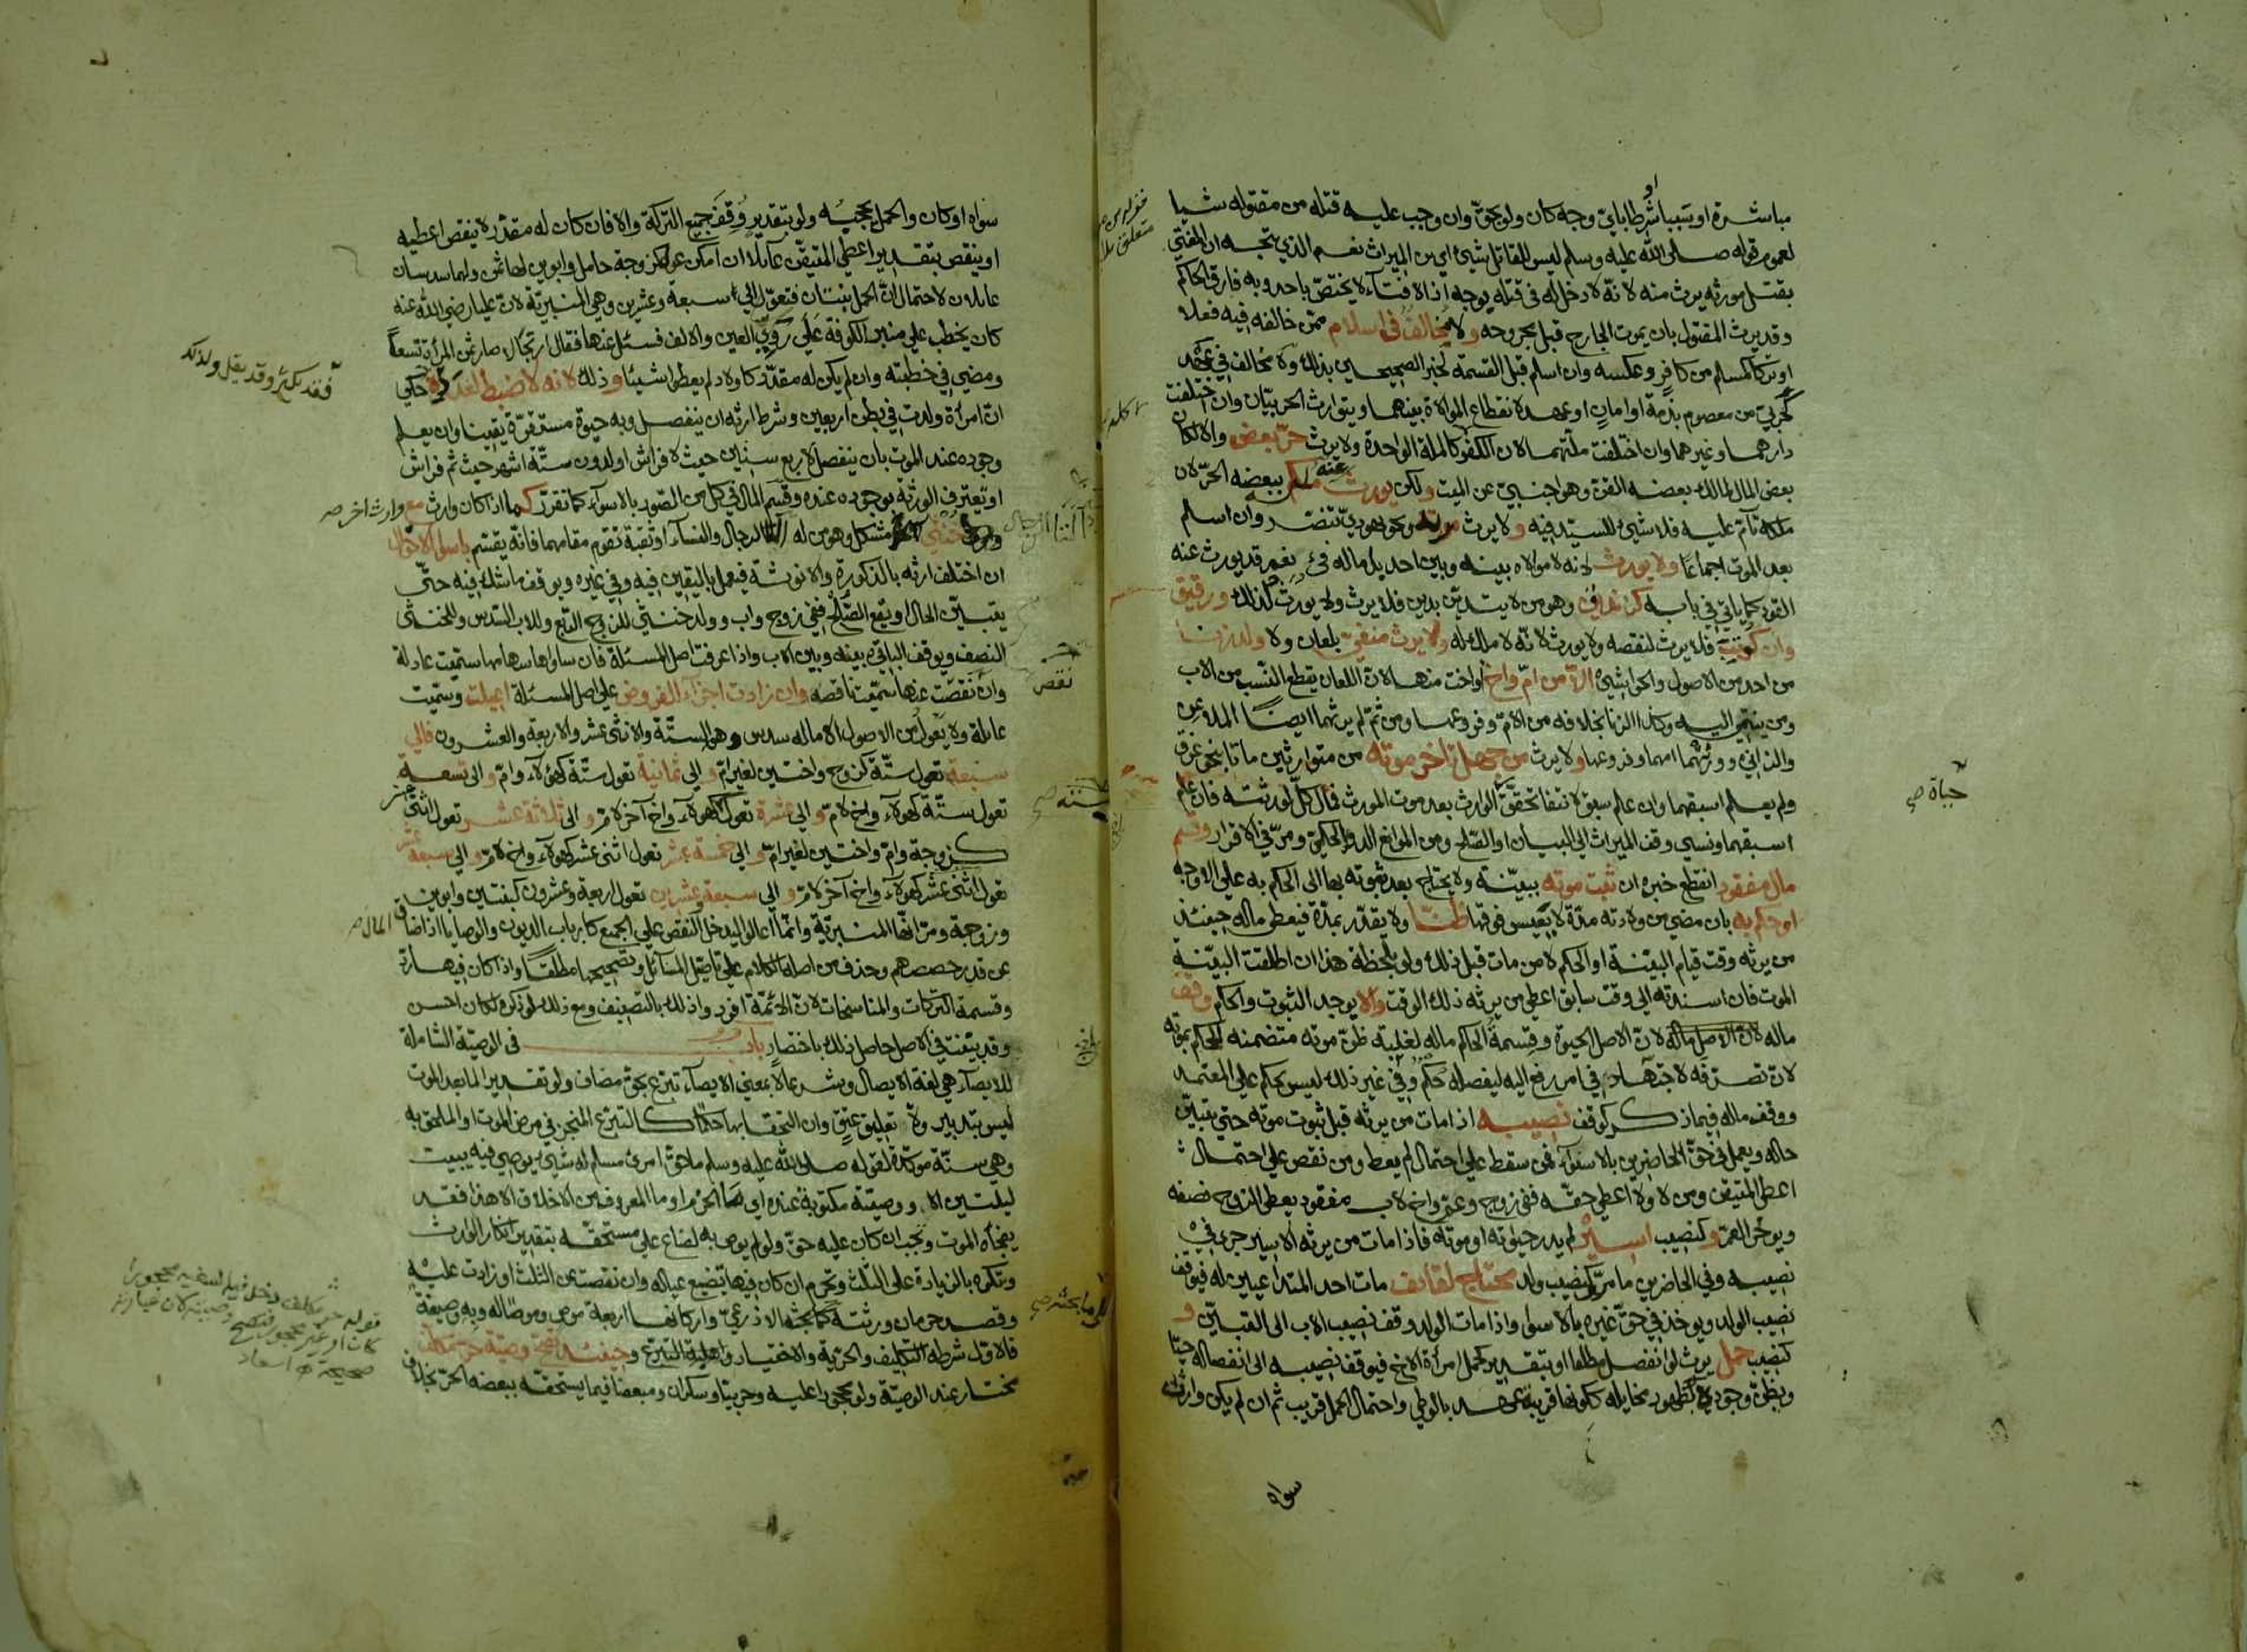 مباشرة او تسببا او شرطا باي وجه كان ولو بحق وان وجب عليه قتله من مقتوله شيا
لعموم قوله صلى الله عليه وسلم ليس للقاتل شيئ اي من الميراث نعم الذي يتجه ان المفتي
بقتل مورثه يرث منه لانه لا دخل له في قتله بوجه اذ الافتآء لا يختص باحد وبه فارق الحاكم
وقد يرث المقتول بان يموت الجارح قبل مجروحه ولا مخالف في اسلام ممن خالفه فيه فعلا
او تركا كمسلم من كافر وعكسه وان اسلم قبل القسمة لخبر الصحيحين بذلك ولا مخالف في عهد
كحربي من معصوم بذمة او امان او عهد لانقطاع الموالاة بينهما ويتوارث الحربيان وان اختلفت
دارهما وغيرهما وان اختلفت ملتهما لان الكفر كالملة الواحدة ولا يرث حر بعض والا لكان
بعض المال لمالك بعضه القن وهو اجنبي عن الميت ولكن يورث عنه ملكه ببعضه الحر لان
ملكه تام عليه فلا شيئ للسيد فيه ولا يرث مرتد ونحو يهودي تنصر وان اسلم
بعد الموت اجماعا ولا يورث لانه لا موالاة بينه وبين احد بل ماله فئ نعم قد يورث عنه
القود كما ياتي في بابه كزنديق وهو من لا يتدين بدين فلا يرث ولا يورث كذلك ورقيق
وان كوتب فلا يرث لنقصه ولا يورث لانه لا ملك له ولا يرث منفي بلعان ولا ولد زنا
من احد من الاصول والحواشي الا من ام واخ او اخت منها لان اللعان يقطع النسب من الاب
ومن ينتمي اليه وكذا الزنا بخلافه من الام وفروعها ومن ثم لم يرثهما ايضا الملاعن
والزاني وورثهما امهما وفروعها ولا يرث من جهل تاخر موته من متوارثين ماتا بنحو غرق
ولم يعلم اسبقهما وان علم سبق لانتفا تحقق حياة الوارث بعد موت المورث فمال كل لورثته فان علم
اسبقهما ونسي وقف الميراث الى البيان او الصلح ومن الموانع الدور الحكمي ومر في الاقرار وقسم
مال مفقود انقطع خبره ان ثبت موته ببينة ولا يحتاج بعد ثبوته بها الى الحكم به على الاوجه
او حكم به بان مضي من ولادته مدة لا يعيش فوقها ظنا ولا يقدر بمدة فيعطى ماله حينئذ
من يرثه وقت قيام البينة او الحكم لا من مات قبل ذلك ولو بلحظة هذا ان اطلقت البينة
الموت فان اسندته الى وقت سابق اعطي من يرثه ذلك الوقت والا يوجد الثبوت والحكم وقف
ماله لان الاصل الحيوة وقسمة الحاكم ماله لغلبة ظن موته متضمنة للحكم بموته
لان تصرفه لاجتهاد في امر رفع اليه ليفصله حكم وفي غير ذلك ليس بحكم على المعتمد
ووقف ماله فيما ذكر كوقف نصيبه اذا مات من يرثه قبل ثبوت موته حتى يتبين
حاله ويعمل في حق الحاضرين بالاسوآء فمن سقط على احتمال لم يعط ومن نقص على احتمال
اعطي المتيقن ومن لا ولا اعطي حقه ففي زوج وعم واخ لاب مفقود يعطى الزوج نصفه
ويوخر العم وكنصيب اسير لم يدر حيوته او موته فاذا مات من يرثه الاسير جرى في
نصيبه وفي الحاضرين ما مر وكنصيب ولد محتاج لقائف مات احد المتداعيين له فيوقف
نصيب الولد ويوخذ في حق غيره بالاسوا واذا مات الولد وقف نصيب الاب الى التبين و
كنصيب حمل يرث لو انفصل مطلقا او بتقدير كحمل امراة الاخ فيوقف نصيبه الى انفصاله حيا
ويظن وجوده بظهور مخايله ككونها قريبة عهد بالوطي واحتمال الحمل قريب ثم ان لم يكن وارث
سواه
متعلق
حياة صح
سواه او كان والحمل يحجبه ولو بتقدير وقف جميع التركة والا فان كان له مقدر لا ينقص اعطيه
او ينقص بتقدير اعطي المتيقن عائلا ان امكن عول كزوجة حامل وابوين لها ثمن ولهما سدسان
عائلان لاحتمال ان الحمل بنتان فتعول الى سبعة وعشرين وهي المنبرية لان عليا رضي الله عنه
كان يخطب على منبر الكوفة على روي العين والالف فسئل عنها فقال ارتجالا صار ثمن المراة تسعا
ومضى في خطبته وان لم يكن له مقدر كاولاد لم يعطوا شيئا وذلك لانه لا ضبط لعدده فحكي
ان امراة ولدت في بطن اربعين وشرط ارثه ان ينفصل وبه حيوة مستقرة يقينا وان يعلم
وجوده عند الموت بان ينفصل لاربع سنين حيث لا فراش او لدون ستة اشهر حيث ثم فراش
او تعترف الورثة بوجوده عنده وقسم المال في كل من الصور بالاسوآء كما تقرر كما اذا كان وارث مع وارث اخر صح
خنثى مشكل وهو من له الة الرجال والنسآء او ثقبة تقوم مقامهما فانه يقسم باسوا الاحوال
ان اختلف ارثه بالذكورة والانوثة فيعمل باليقين فيه وفي غيره ويوقف ما شك فيه حتى
يتبين الحال او يقع الصلح ففي زوج واب وولد خنثى للزوج الربع وللاب السدس وللخنثى
النصف ويوقف الباقي بينه وبين الاب واذا عرفت اصل المسئلة فان ساواها سهامها سميت عادلة
وان نقصت عنها سميت ناقصة وان زادت اجزآء الفروض على اصل المسئلة اعيلت وسميت
عائلة ولا يعول من الاصول الا ما له سدس وهو الستة والاثنى عشر والاربعة والعشرون فالى
سبعة تعول ستة كزوج واختين لغير ام والى ثمانية تعول ستة كهؤلآء وام والى تسعة
تعول ستة كهؤلآء واخ لام والى عشرة تعول كهؤلآء واخ آخر لام والى ثلاثة عشر تعول اثنى عشر
كزوجة وام واختين لغير ام والى خمسة عشر تعول اثنى عشر كهولآء واخ لام والى سبعة عشر
تعول اثنى عشر كهولآء واخ آخر لام والى سبعة وعشرين تعول اربعة وعشرون كبنتين وابوين
وزوجة ومر انها المنبرية وانما اعالوا ليدخل النقص على الجميع كارباب الديون والوصايا اذا ضاق المال صح
عن قدر حصصهم وحذف من اصله الكلام على تاصيل المسائل وتصحيحها مطلقا واذا كان فيها رد
وقسمة التركات والمناسخات لان الائمة افردوا ذلك بالتصنيف ومع ذلك لو ذكره لكان احسن
وقد بينت في الاصل حاصل ذلك باختصار باب في الوصية الشاملة
للايصآء هي لغة الايصال وشرعا لا بمعنى الايصآء تبرع بحق مضاف ولو تقديرا لما بعد الموت
ليس بتدبير ولا تعليق عتق وان التحقا بها حكما كالتبرع المنجز في مرض الموت او الملحق به
وهي سنة موكدة لقوله صلى الله عليه وسلم ما حق امرئ مسلم له شيئ يوصي فيه يبيت
ليلتين الا ووصيته مكتوبة عنده اي ما الحزم او ما المعروف من الاخلاق الا هذا فقد
يفجأه الموت وتجب ان كان عليه حق ولو لم يوص به لضاع على مستحقه بتقدير انكار الوارث
وتكره بالزيادة على الثلث وتحرم ان كان فيها تضييع عياله وان نقصت عن الثلث او زادت عليه
وقصد حرمان ورثته كما بحثه الاذرعي واركانها اربعة موص وموصا له وبه وصيغة
فالاول شرطه التكليف والحرية والاختيار واهلية التبرع وحينئذ تصح وصية حر مكلف
مختار عند الوصية ولو محجورا عليه وحربيا وسكران ومبعضا فيما يستحقه ببعضه الحر بخلاف
فقد يكثر وقد يقل ولذلك
نقص
ستة صح
قوله حر مكلف دخل فيه السفيه محجورا
كان او غير محجور فتصح وصيته لان عبارته
صحيحة اه اسعاد